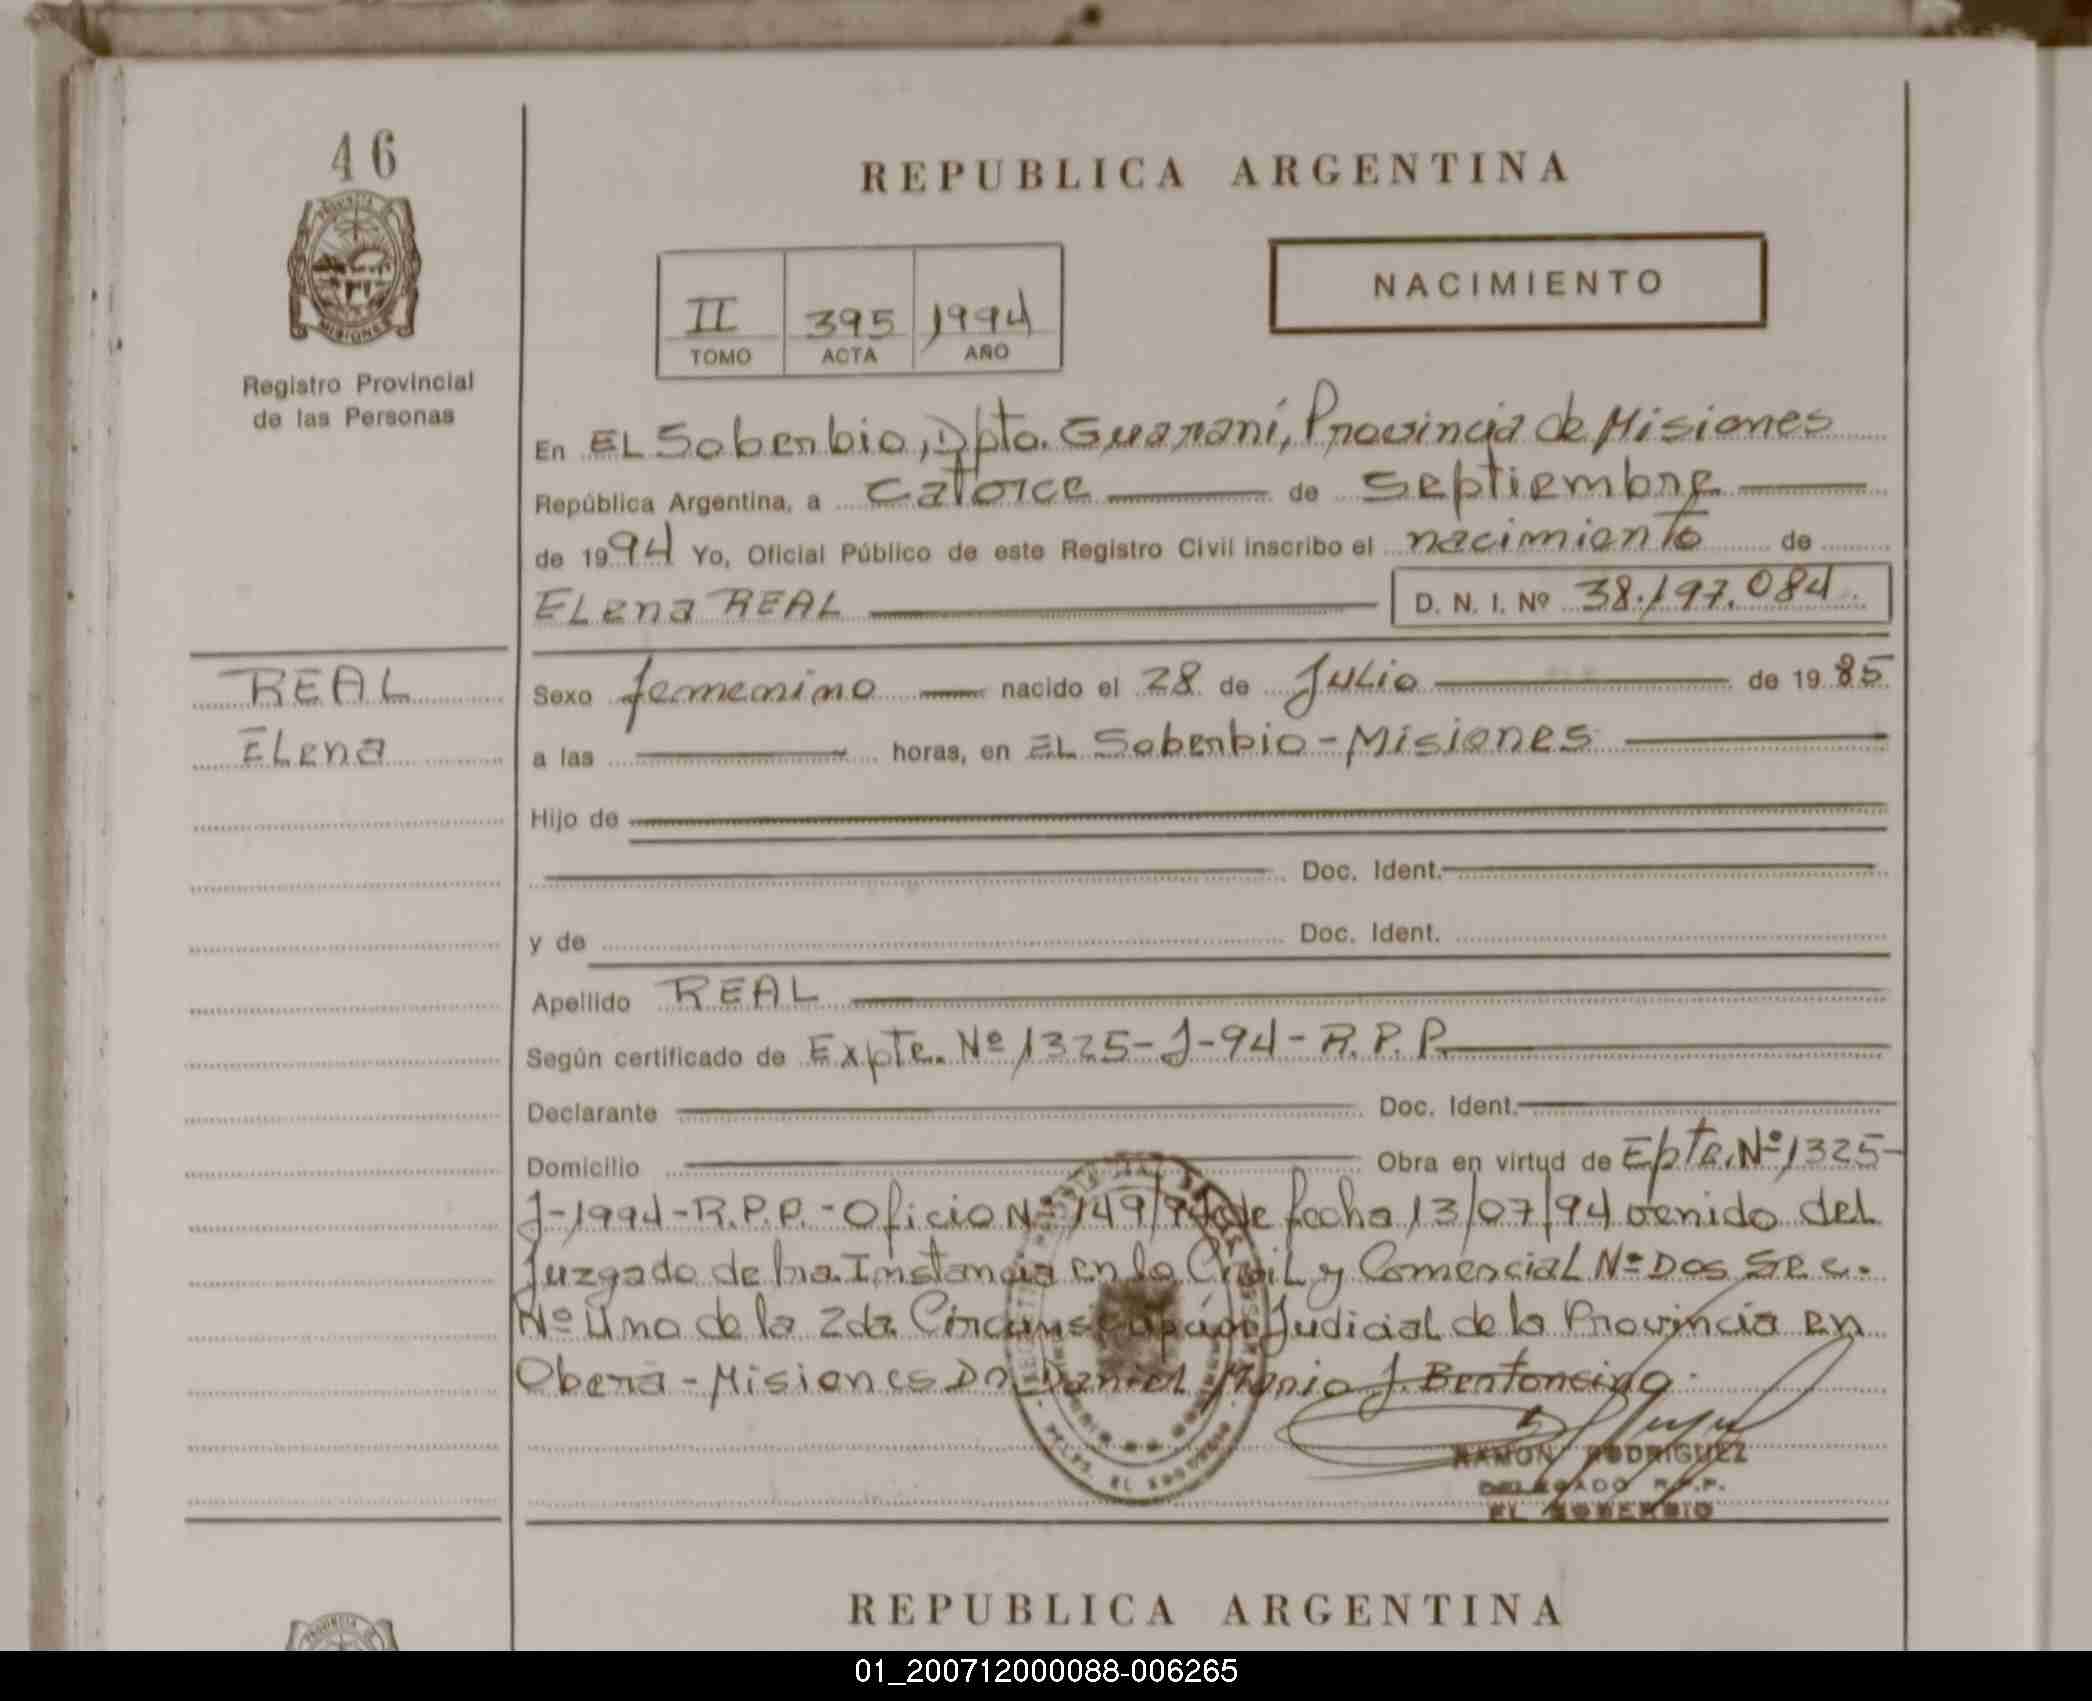 46
REPUBLICA ARGENTINA
PROVINCIA DE
MISIONES
NACIMIENTO
II 395 1994
TOMO ACTA AÑO
Registro Provincial
de las Personas
En EL Soberbio, Dpto. Guaraní, Provincia de Misiones
República Argentina, a catorce de septiembre
de 1994 Yo, Oficial Público de este Registro Civil inscribo el nacimiento de
ELena REAL D. N. I. Nº 38.197.084
REAL
ELena
Sexo femenino nacido el 28 de Julio de 1985
a las horas, en EL Soberbio - Misiones
Hijo de
Doc. Ident.
y de Doc. Ident.
Apellido REAL
Según certificado de Expte. Nº 1325-J-94-R.P.P.
Declarante Doc. Ident.
Domicilio Obra en virtud de Epte. Nº 1325-
J-1994-R.P.P.-Oficio Nº 149/94 de fecha 13/07/94 venido del
Juzgado de 1ra. Instancia en lo Civil y Comercial Nº Dos Sec.
Nº Uno de la 2da. Circunscripción Judicial de la Provincia en
Obera-Misiones Dr. Daniel J. Bertoncino.
RAMON RODRIGUEZ
DELEGADO R.P.P.
EL SOBERBIO
REPUBLICA ARGENTINA
PROVINCIA
01_200712000088-006265